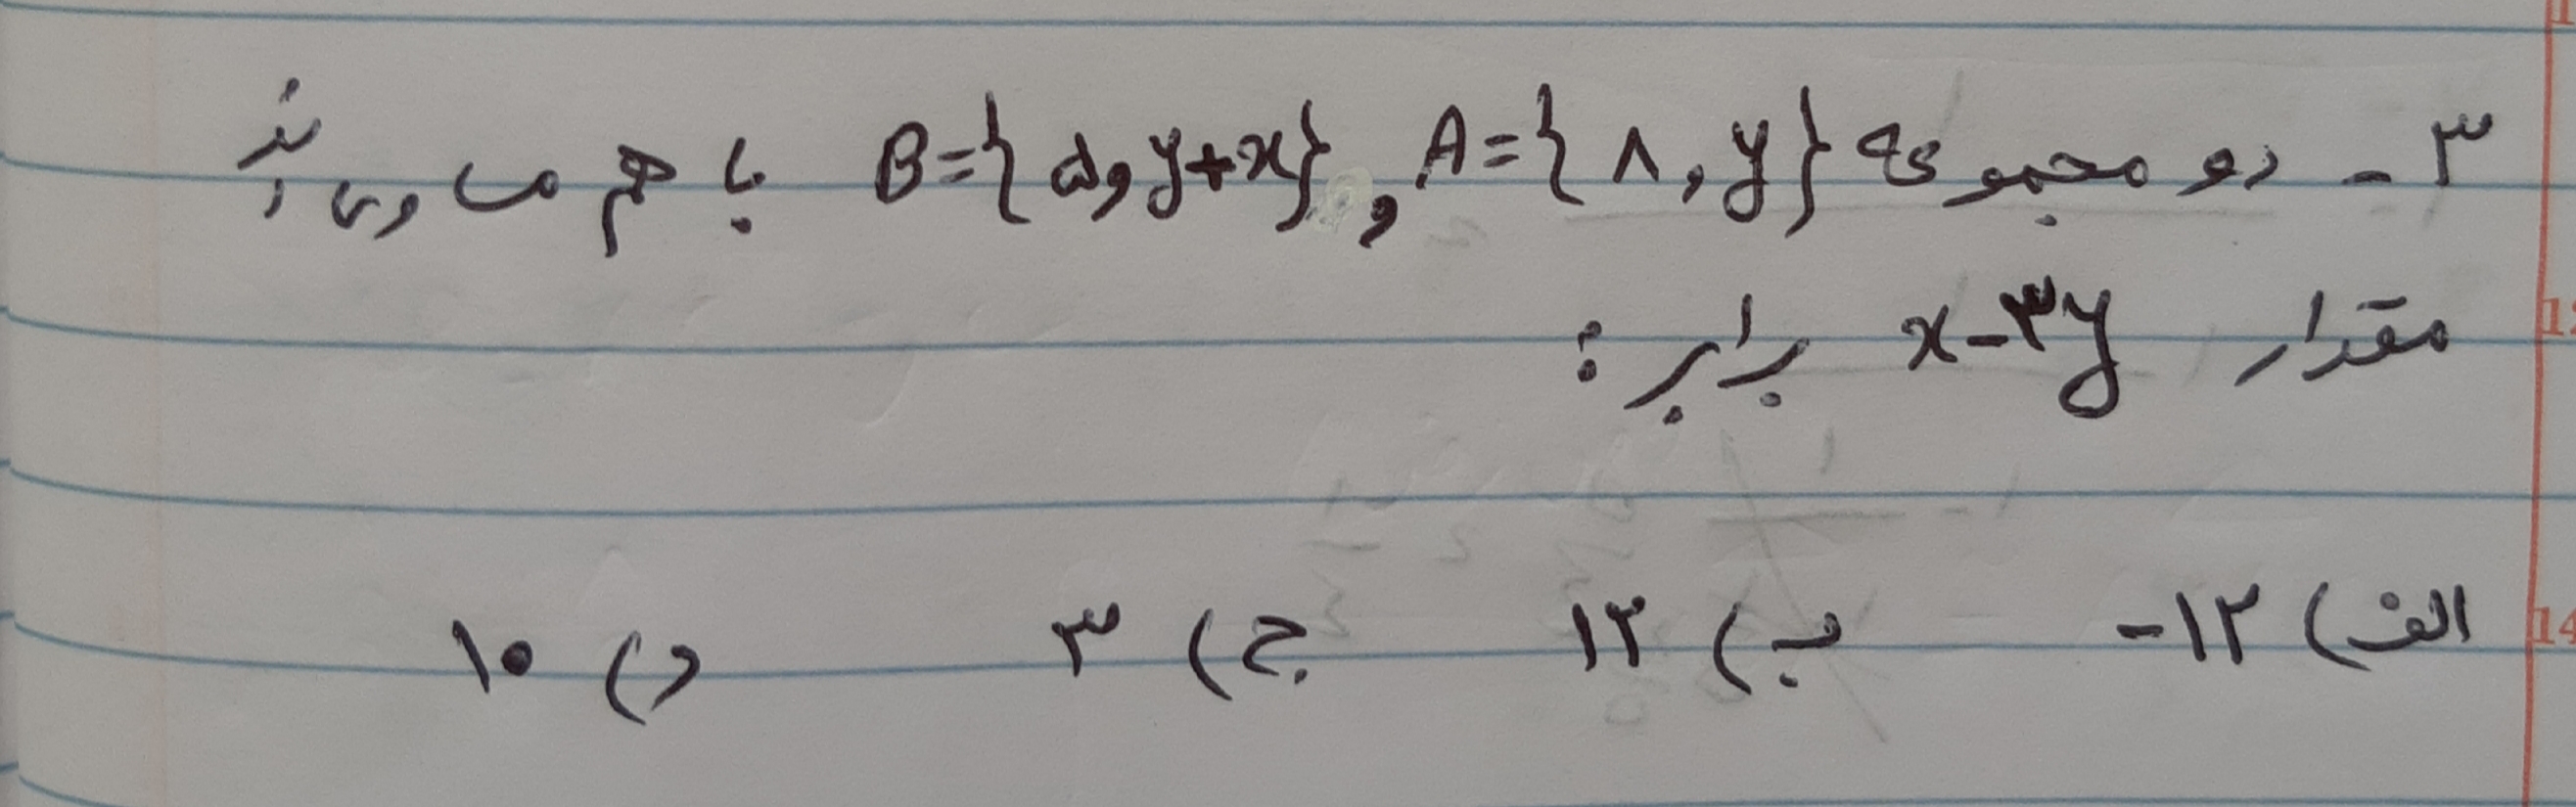 ۳ - دو مجموعه A={۸ , y} و B={۵ و y+x} با هم مساوی اند
مقدار x-۳y برابر :
الف) ۱۲- ب) ۱۲ ج) ۳ د) ۱۰